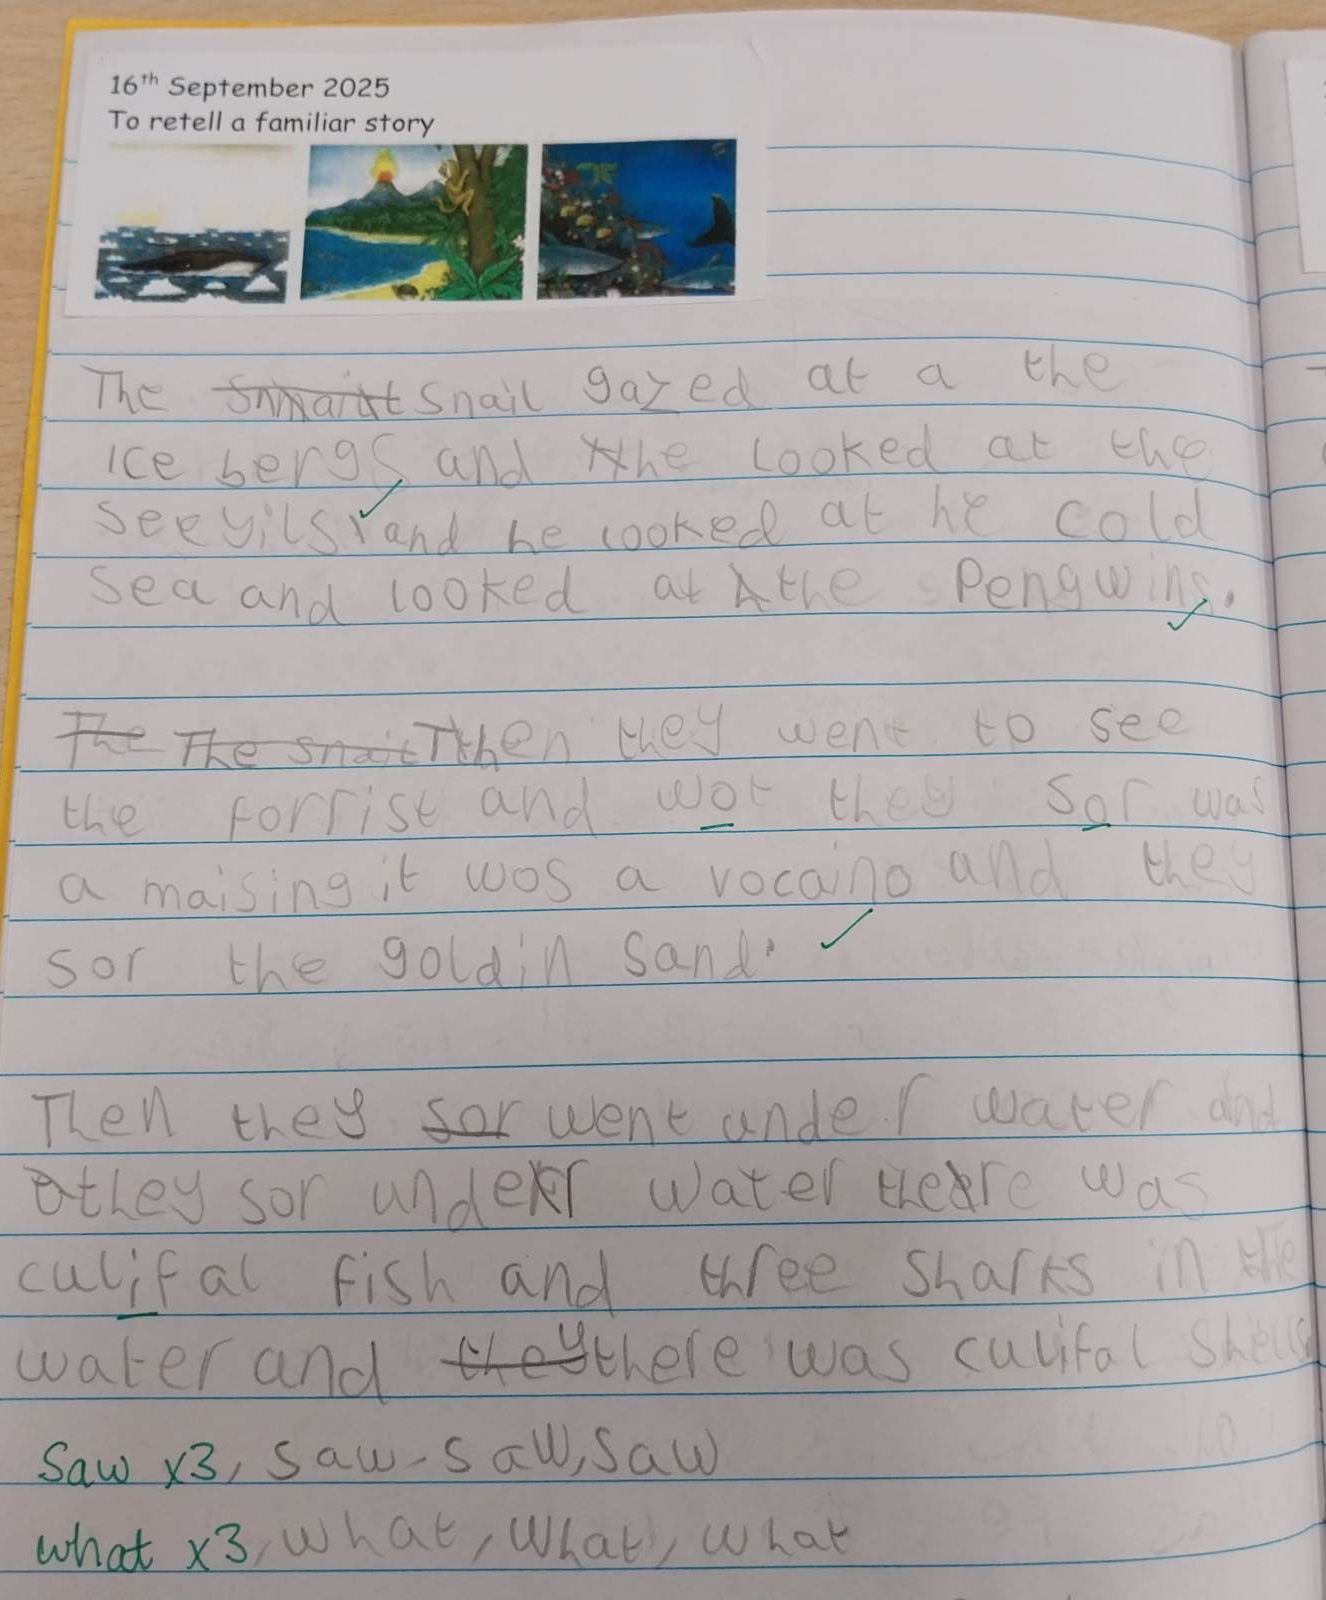 16th September 2025
To retell a familiar story
The snail gazed at a the
ice bergs and the looked at the
seeyils and he looked at he cold
sea and looked at the Pengwins.
The The snail Then they went to see
the forrist and wot they sor was
a maising it wos a vocaino and they
sor the goldin sand.
Then they sor went under water and
they sor under water there was
culifal fish and three sharks in the
water and they there was culifal shells
Saw x3, saw, saw, saw
what x3, what, what, what